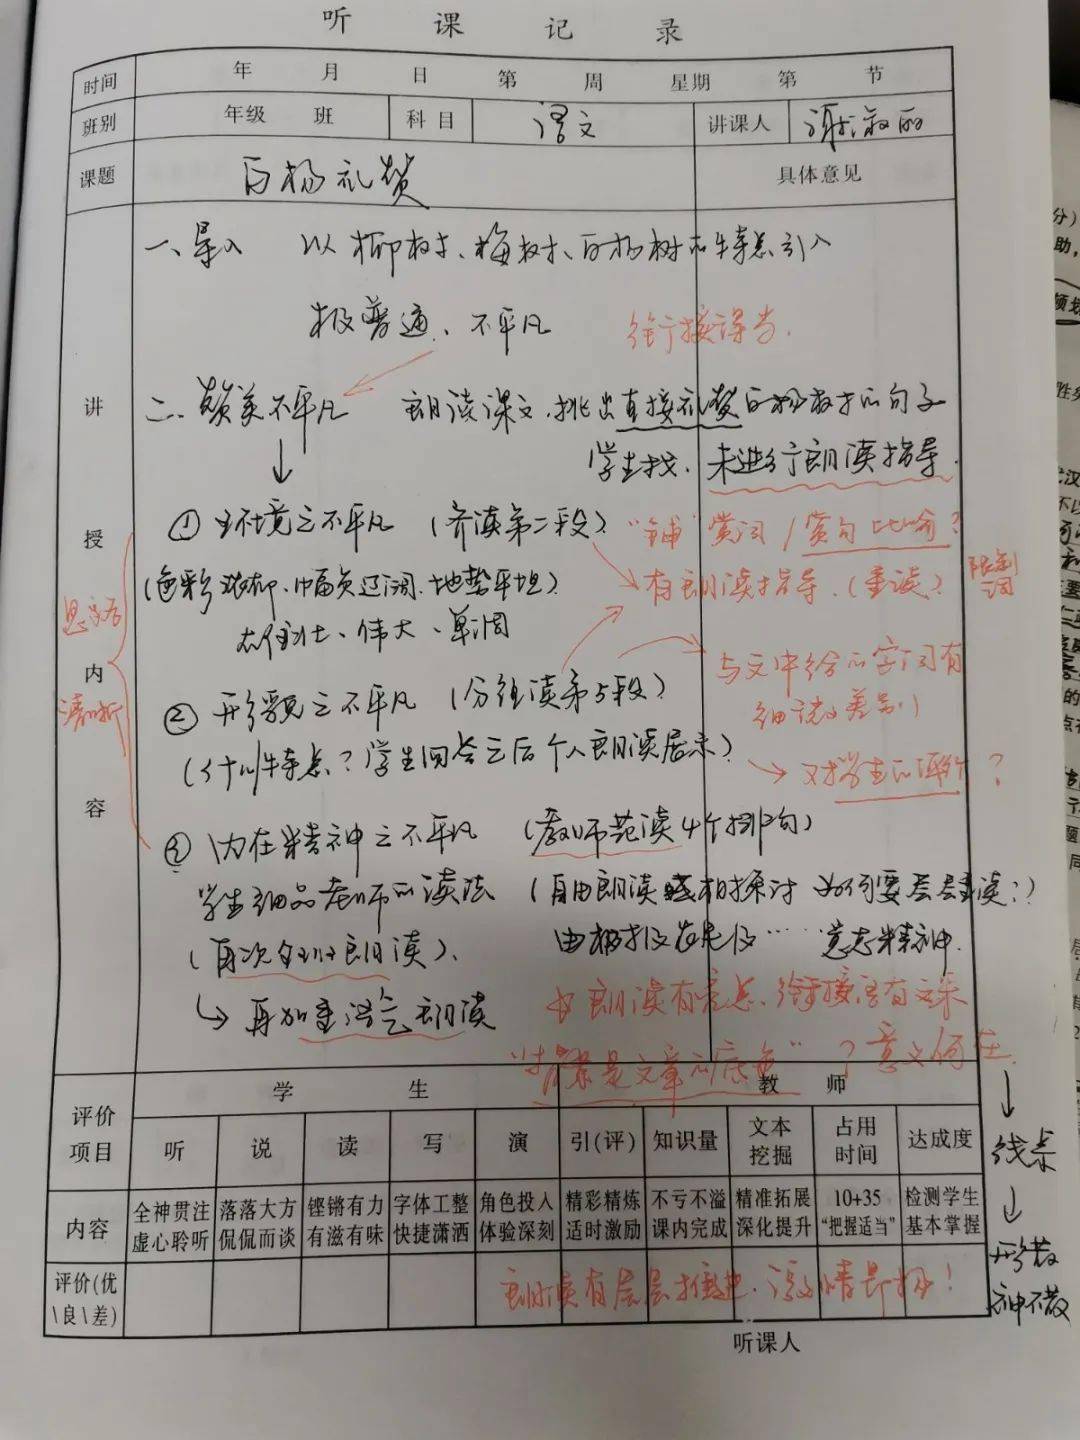 听 课 记 录
时间 年 月 日 第 周 星期 第 节
班别 年级 班 科目 语文 讲课人 谢淑丽
课题 白杨礼赞 具体意见
讲授内容
一、导入 以柳树、梅树、白杨树的特点引入
极普通、不平凡 衔接得当.
二、赞美不平凡 朗读课文,挑出直接礼赞白杨树的句子
学生找. 未进行朗读指导.
① 生环境之不平凡 (齐读第二段) "铺"赏词/赏句比喻?
(色彩 幅员辽阔、地势平坦) 有朗读指导.(重读)
雄壮、伟大、单调
思路清晰
② 形貌之不平凡 (分组读第5段) 与文中给的字词有
细微差别
(什么特点?学生回答之后个人朗读展示) 对学生的评价?
③ 内在精神之不平凡 (教师范读4个排句)
学生细品老师的读法 (自由朗读 互相探讨 如何要层层重读?)
(再次全班朗读). 由 ……意志精神.
再加重语气朗读 朗读有亮点、衔接语有文采
"背景是文章的底色"?意义何在.
线索
形散
神不散
评价项目 学 生 教 师
听 说 读 写 演 引(评) 知识量 文本挖掘 占用时间 达成度
内容 全神贯注虚心聆听 落落大方侃侃而谈 铿锵有力有滋有味 字体工整快捷潇洒 角色投入体验深刻 精彩精炼适时激励 不亏不溢课内完成 精准拓展深化提升 10+35"把握适当" 检测学生基本掌握
评价(优\良\差) 朗读有层层推进.激情昂扬!
听课人